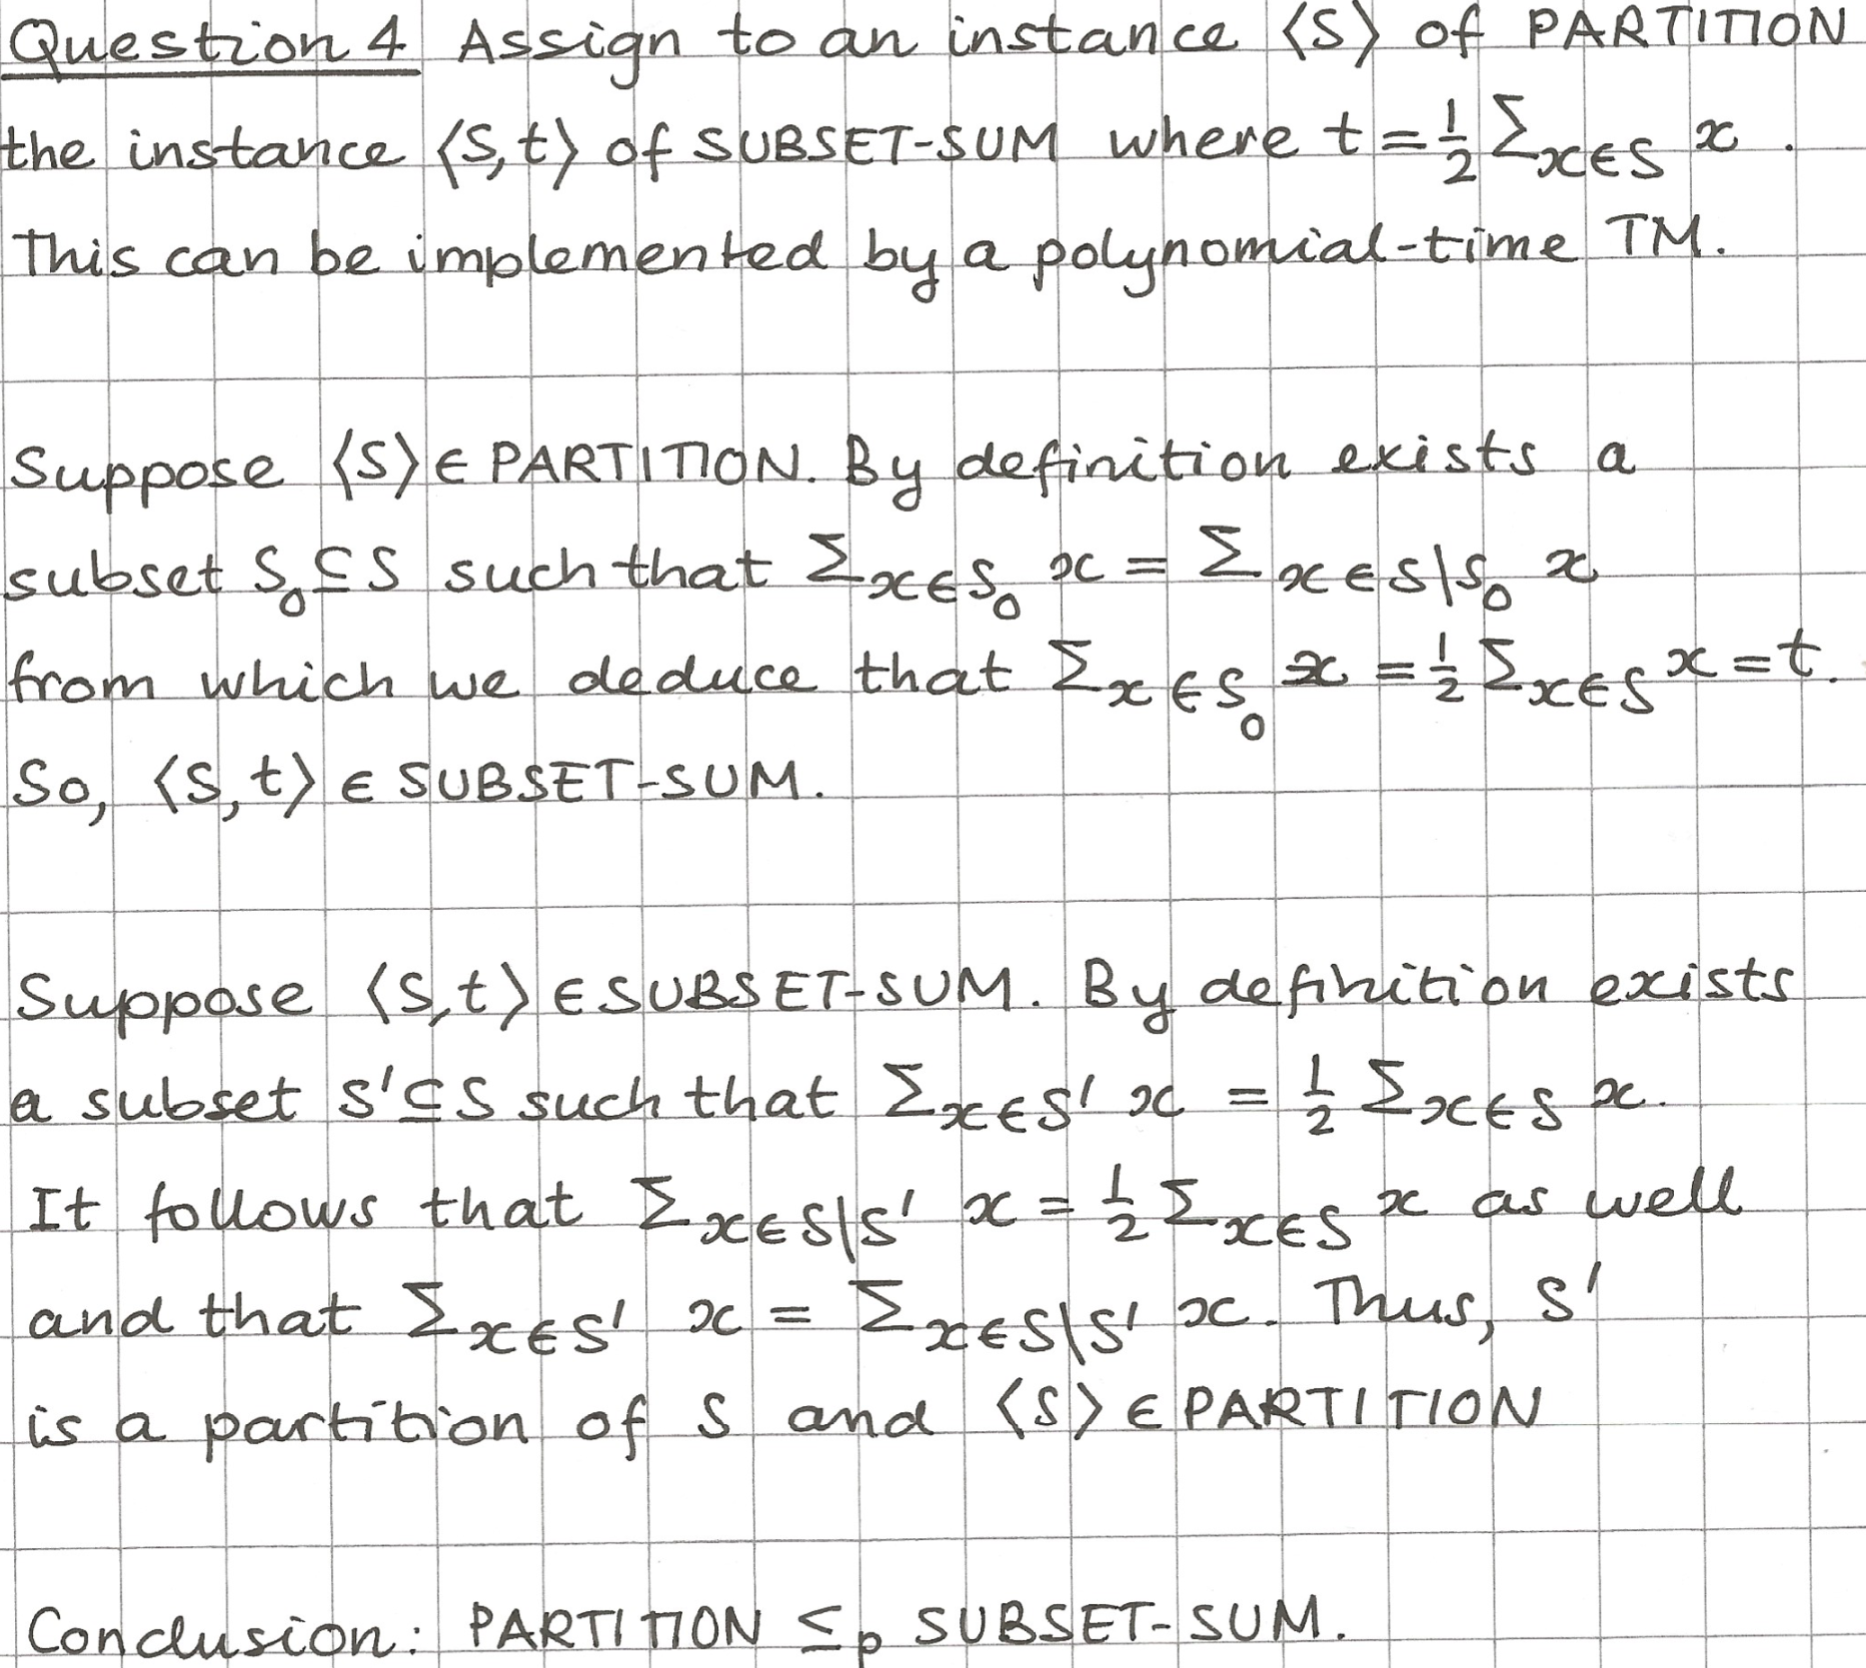 Question 4 Assign to an instance ⟨S⟩ of PARTITION
the instance ⟨S,t⟩ of SUBSET-SUM where t = 1/2 Σ_{x∈S} x .
This can be implemented by a polynomial-time TM.
Suppose ⟨S⟩ ∈ PARTITION. By definition exists a
subset S₀ ⊆ S such that Σ_{x∈S₀} x = Σ_{x∈S\S₀} x
from which we deduce that Σ_{x∈S₀} x = 1/2 Σ_{x∈S} x = t.
So, ⟨S,t⟩ ∈ SUBSET-SUM.
Suppose ⟨S,t⟩ ∈ SUBSET-SUM. By definition exists
a subset S' ⊆ S such that Σ_{x∈S'} x = 1/2 Σ_{x∈S} x.
It follows that Σ_{x∈S\S'} x = 1/2 Σ_{x∈S} x as well
and that Σ_{x∈S'} x = Σ_{x∈S\S'} x. Thus, S'
is a partition of S and ⟨S⟩ ∈ PARTITION
Conclusion: PARTITION ≤_p SUBSET-SUM.